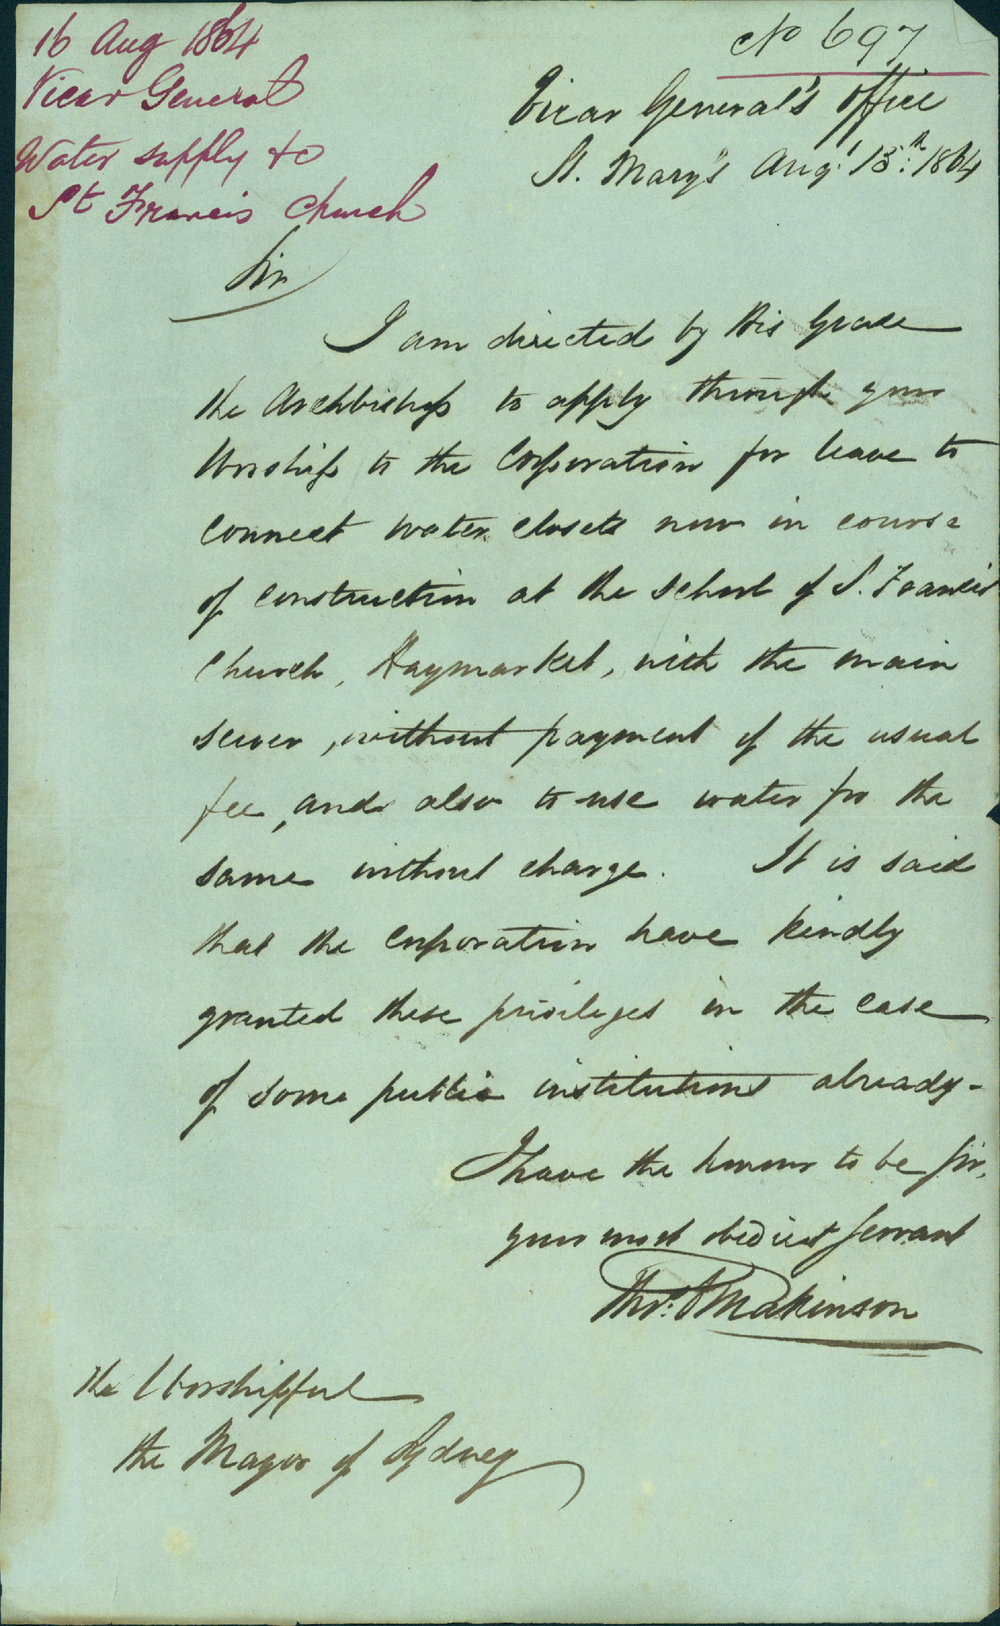 16 Aug 1864
Vicar General
Water supply &c
St Francis Church
No 697
Vicar General's Office
St. Mary's Augt 15th 1864
Sir
I am directed by His Grace
the Archbishop to apply through your
Worship to the Corporation for leave to
connect water closets now in course
of construction at the school of S. Francis
Church, Haymarket, with the main
sewer, without payment of the usual
fee, and also to use water for the
same without charge. It is said
that the Corporation have kindly
granted these privileges in the case
of some public institutions already-
I have the honour to be Sir,
your most obedient servant
Thos. Makinson
The Worshipful
the Mayor of Sydney